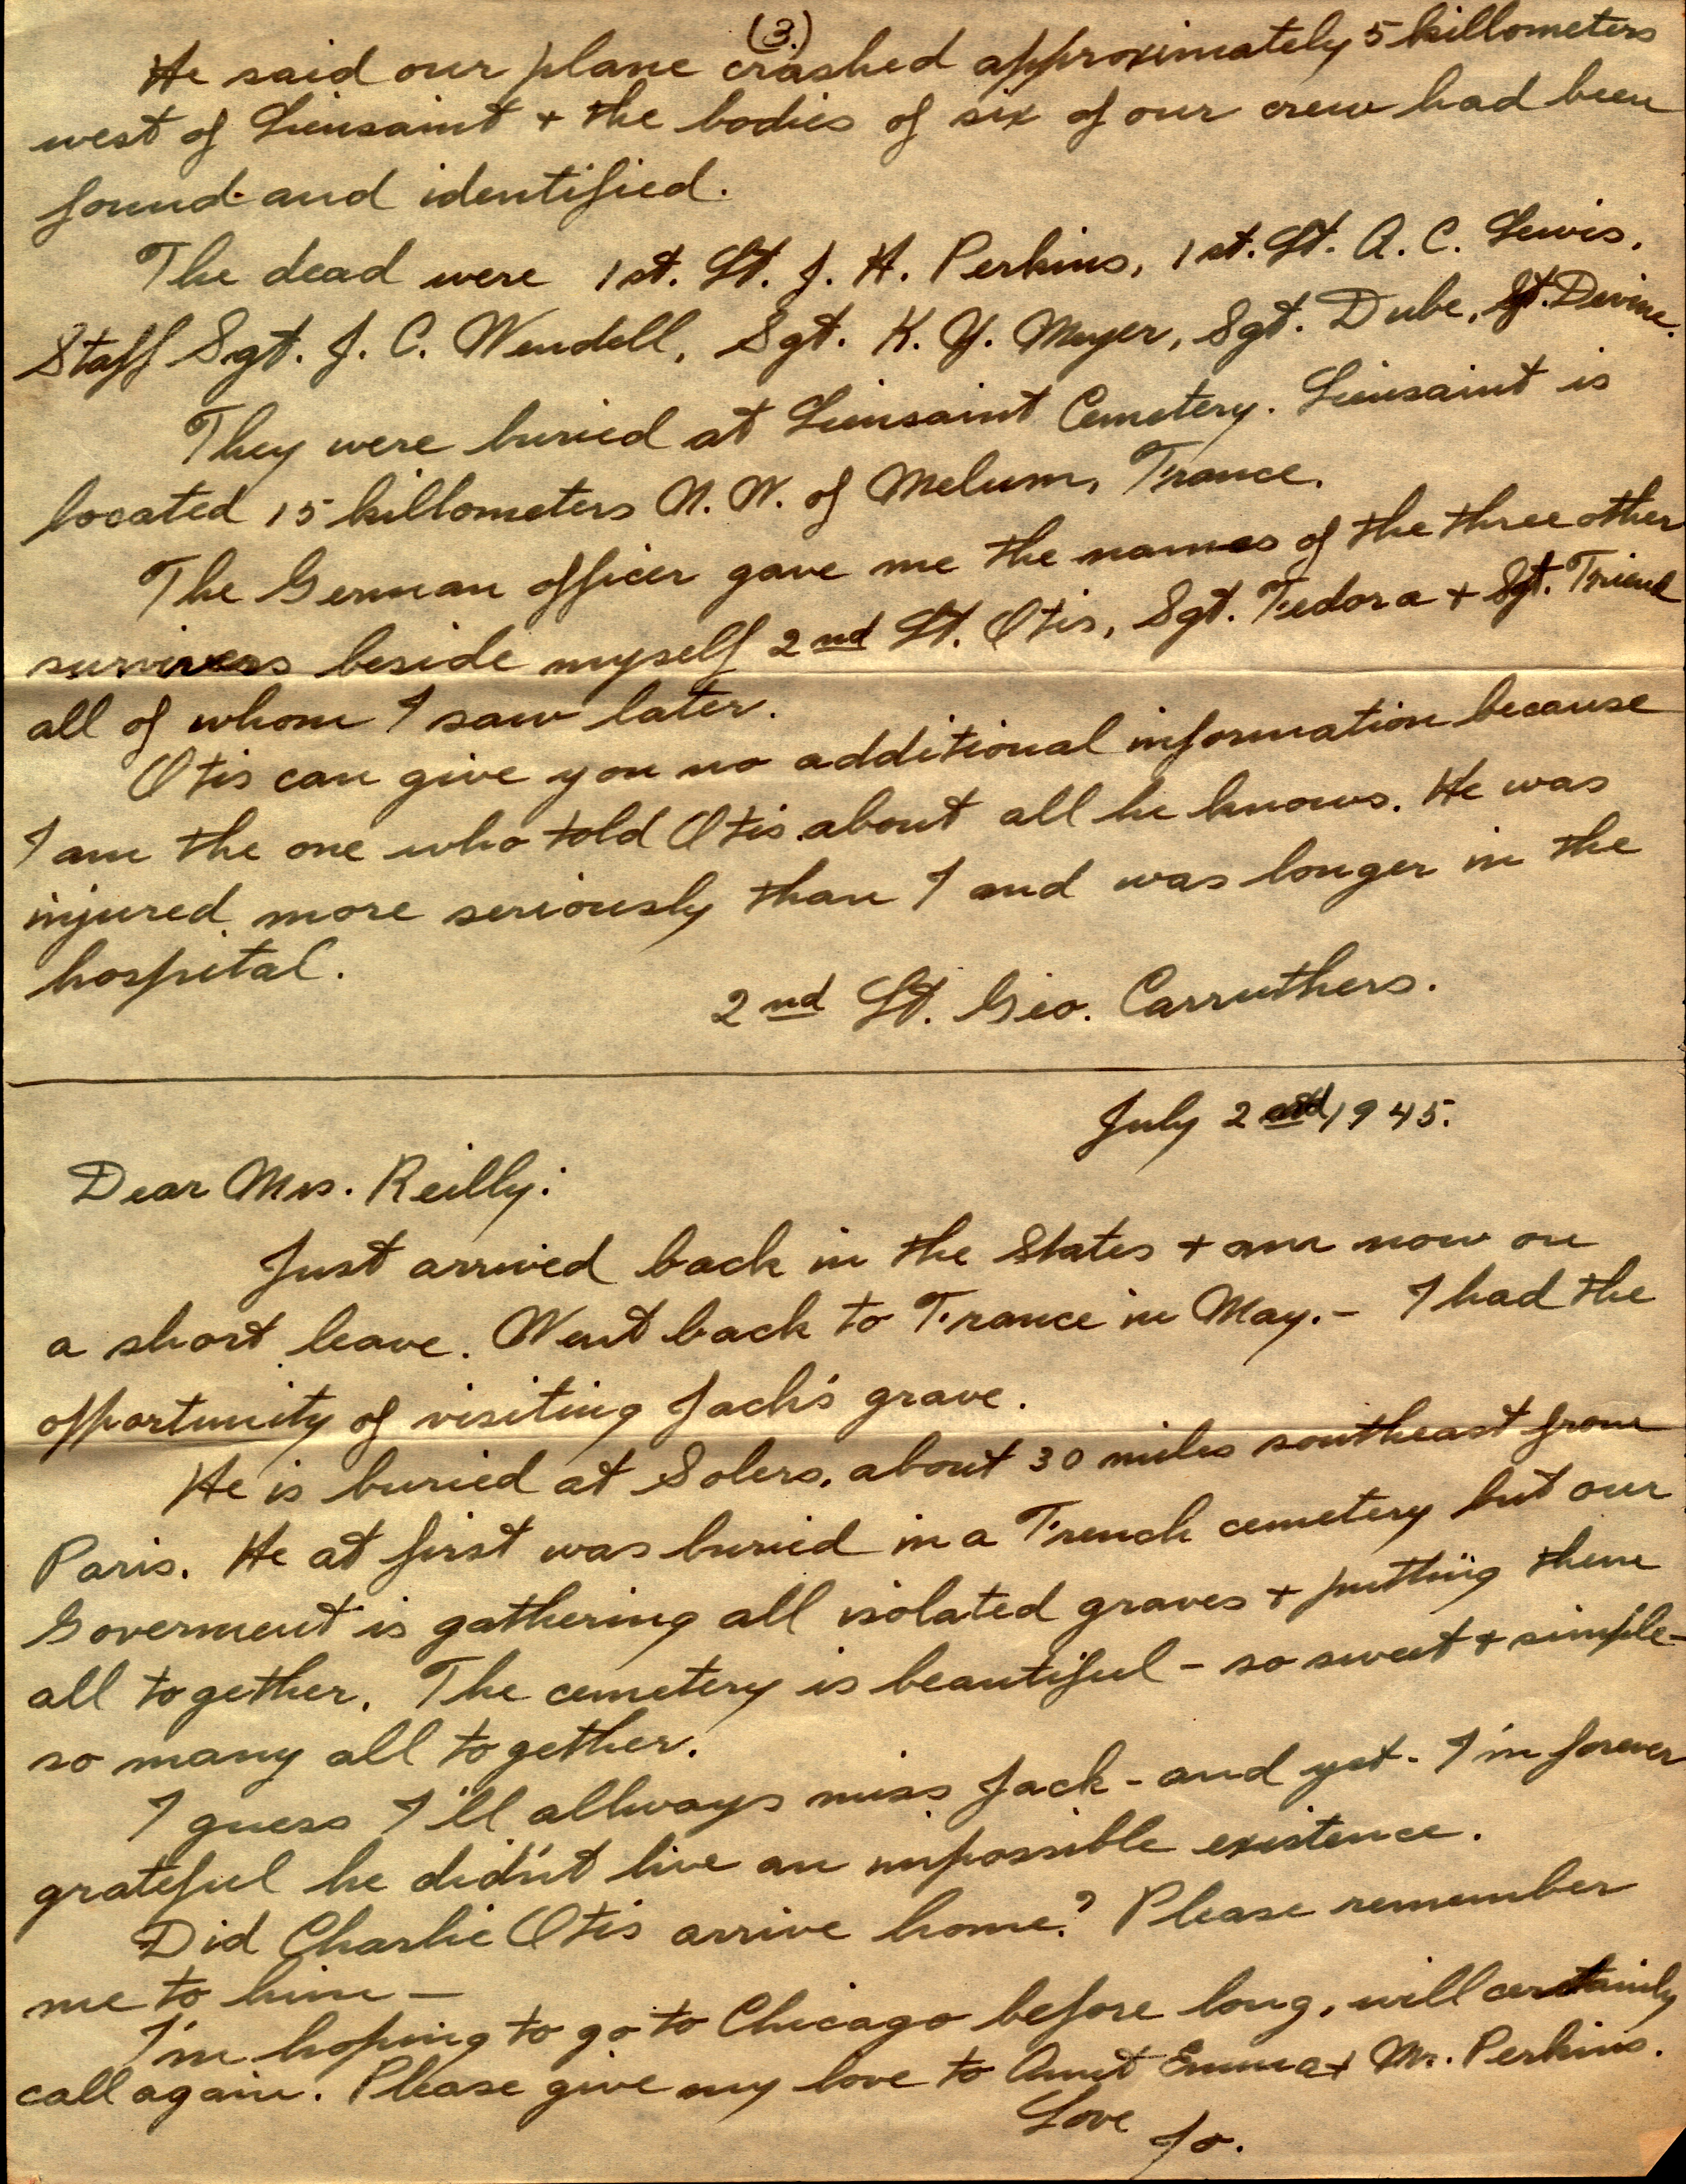 (3.)
He said our plane crashed approximately 5 killometers
west of Lieusaint + the bodies of six of our crew had been
found and identified.
The dead were 1st. Lt. J. H. Perkins, 1st. Lt. A. C. Lewis,
Staff Sgt. J. C. Wendell, Sgt. K. Y. Meyer, Sgt. Dube, Sgt. Devine.
They were buried at Lieusaint Cemetery. Lieusaint is
located 15 killometers N. W. of Melum, France.
The German officer gave me the names of the three other
survivers beside myself 2nd Lt. Otis, Sgt. Fedora + Sgt. Friend
all of whom I saw later.
Otis can give you no additional information because
I am the one who told Otis about all he knows. He was
injured more seriously than I and was longer in the
hospital.
2nd Lt. Geo. Carruthers.
July 2nd 1945.
Dear Mrs. Reilly:
Just arrived back in the States + am now on
a short leave. Went back to France in May. - I had the
opportunity of visiting Jack's grave.
He is buried at Solers, about 30 miles southeast from
Paris. He at first was buried in a French cemetery but our
Goverment is gathering all isolated graves + putting them
all together. The cemetery is beautiful - so sweet + simple -
so many all together.
I guess I'll allways miss Jack - and yet - I'm forever
grateful he didn't live an impossible existence.
Did Charlie Otis arrive home? Please remember
me to him -
I'm hoping to go to Chicago before long, will certainly
call again. Please give my love to Aunt Emma + Mr. Perkins.
Love
Jo.